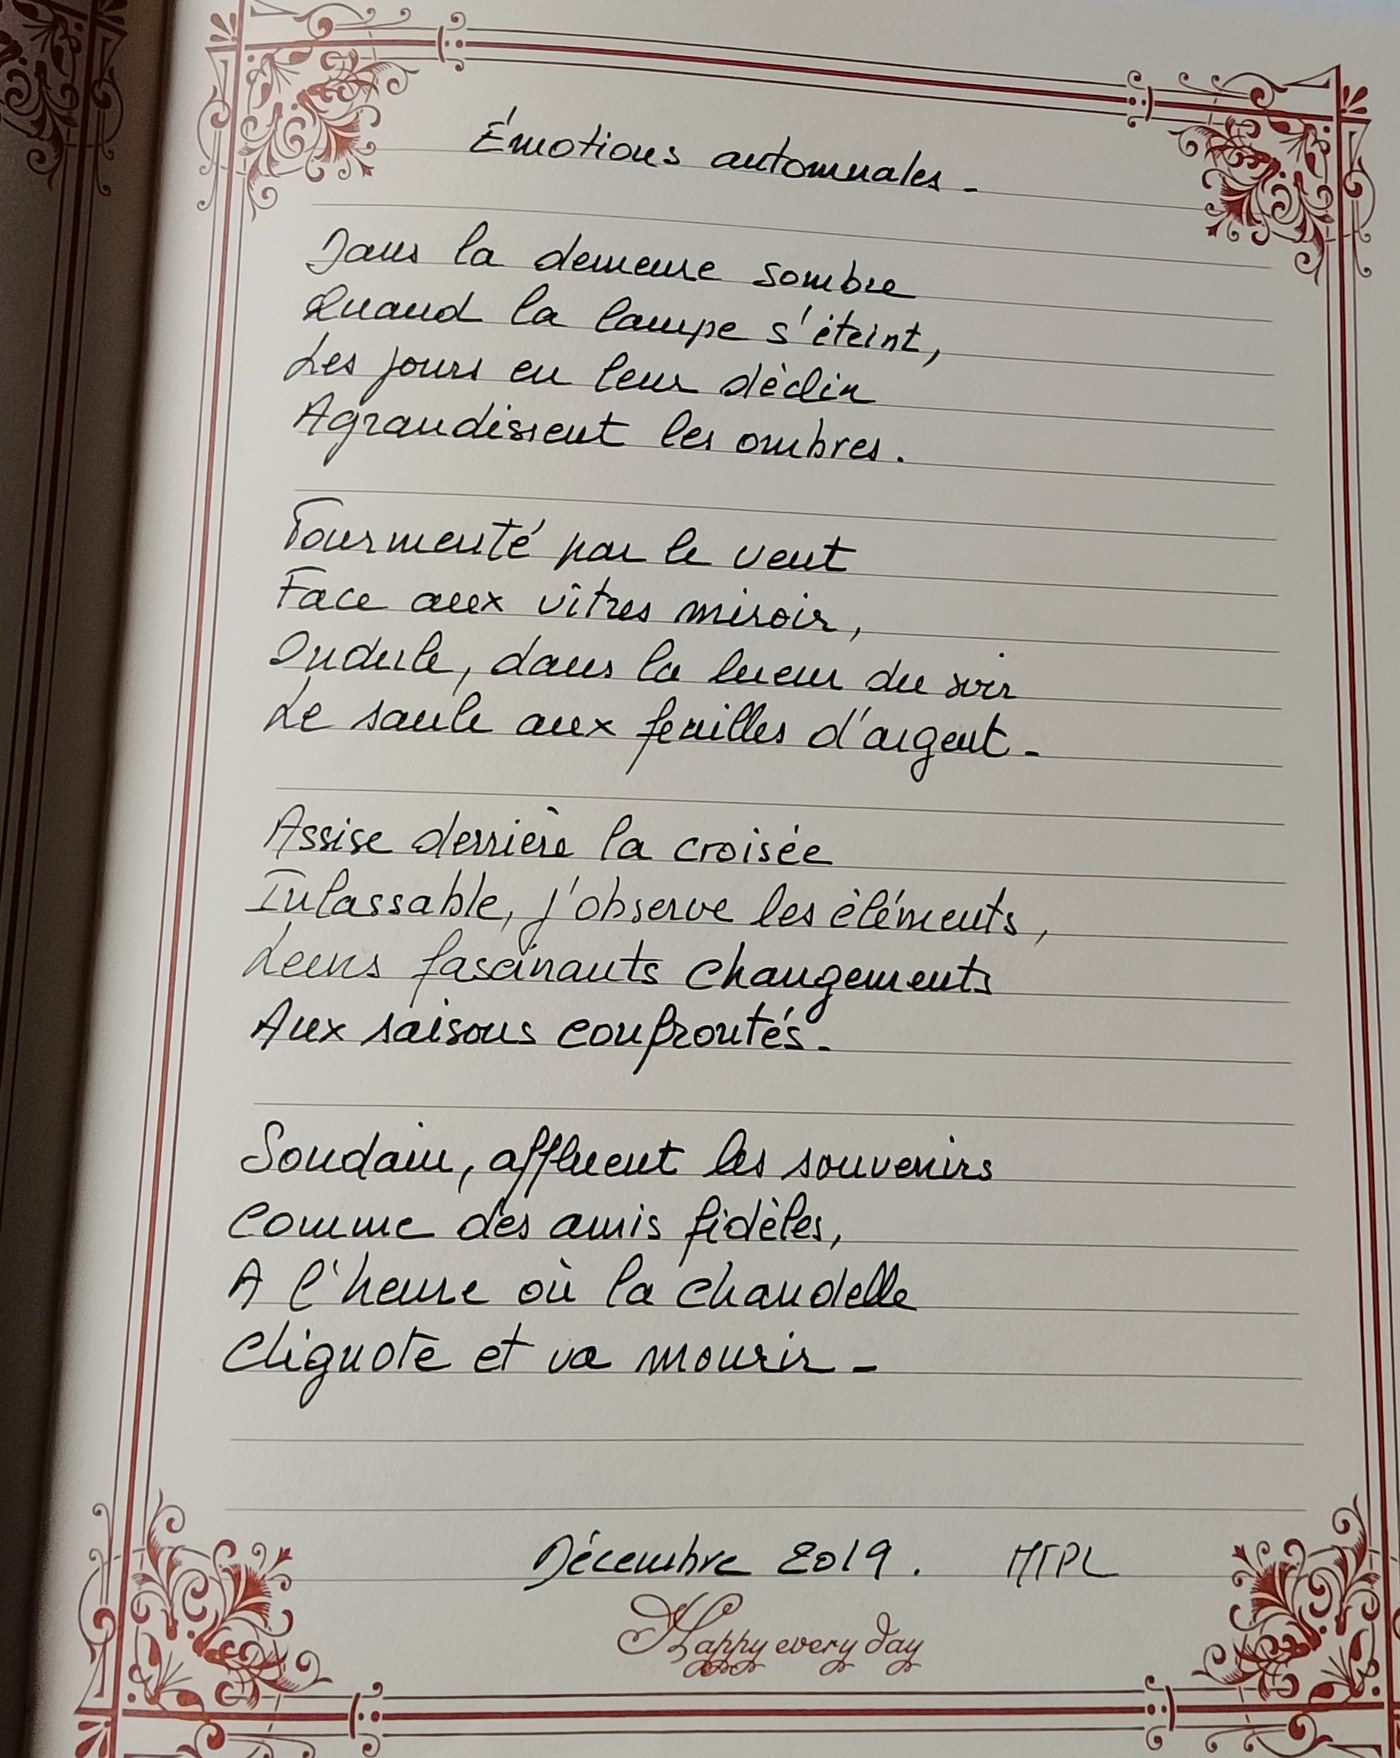 Émotions automnales.
Dans la demeure sombre
Quand la lampe s'éteint,
Les jours en leur déclin
Agrandissent les ombres.
Tourmenté par le vent
Face aux vîtres miroir,
Ondule, dans la lueur du soir
Le saule aux feuilles d'argent.
Assise derrière la croisée
Inlassable, j'observe les éléments,
Leurs fascinants changements
Aux saisons confrontés.
Soudain, affluent les souvenirs
Comme des amis fidèles,
A l'heure où la chandelle
Clignote et va mourir.
Décembre 2019. MTPL
Happy every day